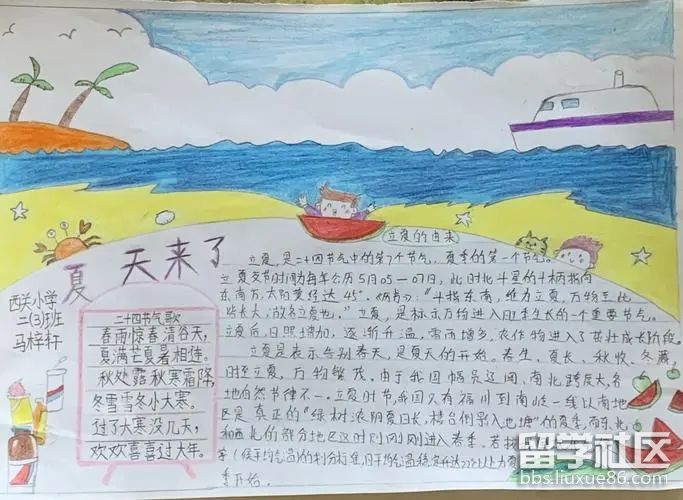 夏天来了
西关小学
二(3)班
马梓轩
二十四节气歌
春雨惊春清谷天,
夏满芒夏暑相连。
秋处露秋寒霜降,
冬雪雪冬小大寒。
过了大寒没几天,
欢欢喜喜过大年。
立夏的由来
立夏,是二十四节气中的第7个节气,夏季的第一个节气。
立夏交节时间为每年公历5月05—07日,此时北斗星的斗柄指向
东南方,太阳黄经达45°。"斗指东南,维为立夏,万物至此
皆长大,故名立夏也。"立夏,是标示万物进入旺季生长的一个重要节气。
立夏后,日照增加,逐渐升温,雷雨增多,农作物进入了茁壮成长阶段。
立夏是表示告别春天,是夏天的开始。春生、夏长、秋收、冬藏
时至立夏,万物繁茂。由于我国幅员辽阔、南北跨度大,各
地自然节律不一。立夏时节,我国只有福州到南岭一线以南地
区是真正的"绿树浓阴夏日长,楼台倒影入池塘"的夏季,而东北
和西北的部分地区这时则刚刚进入春季。若按
季(候平均气温)的划分标准,日平均气温稳定升达22℃以上为夏
季开始。
留学社区
bbs.liuxue86.com